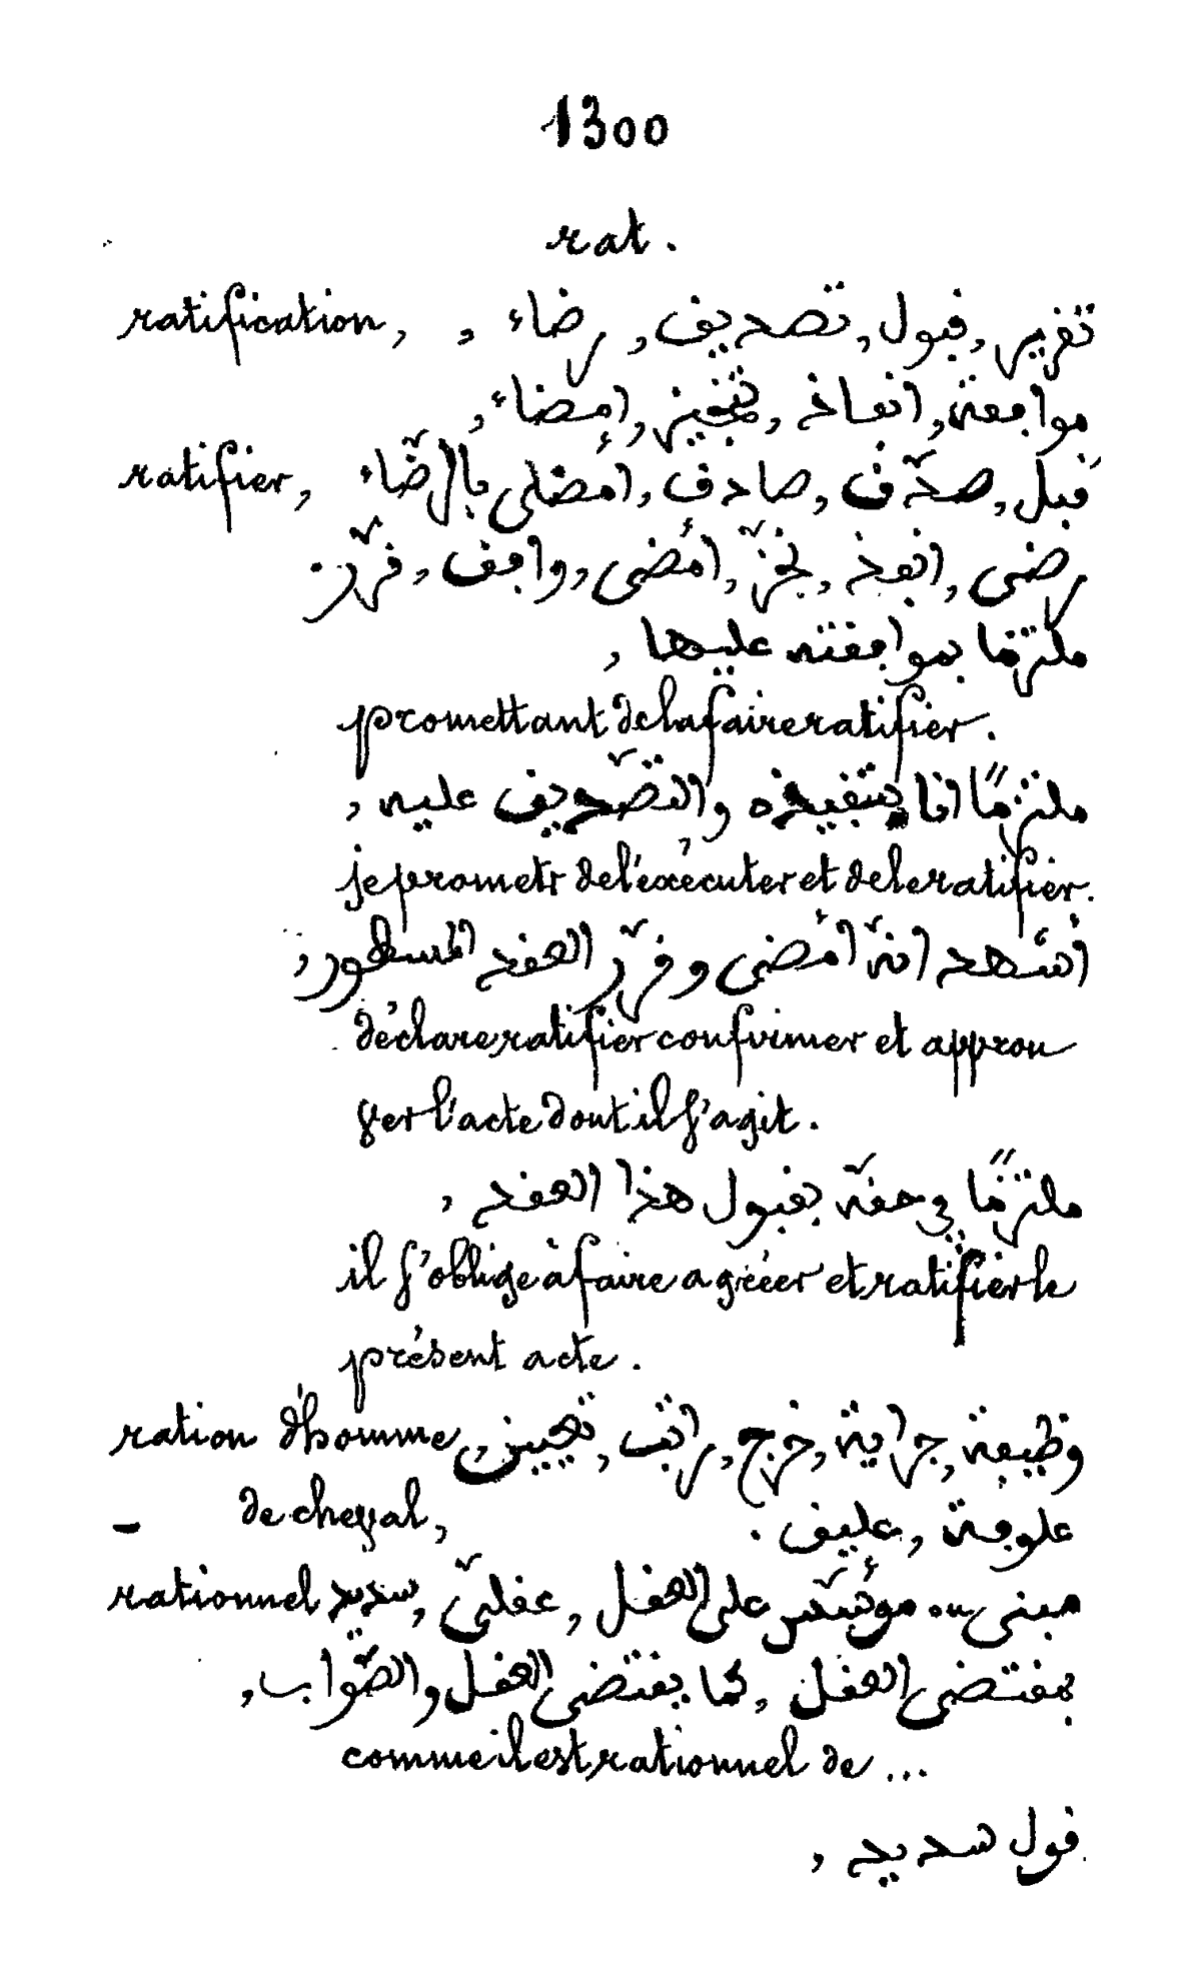 1300
rat.
ratification, تقرير, قبول, تصديق, رضاء,
موافقة, انفاذ, تنجيز, إمضاء,
ratifier, قبل, صدّق, صادق, أمضى بالرّضاء
رضى, انفذ, نجّز, أمضى, وافق, قرّر.
ملتزما بموافقته عليها,
promettant de la faire ratifier.
ملتزمًا انا بتنفيذه والتصّديق عليه,
je promets de l'éxécuter et de le ratifier.
أشهد انّه أمضى وقرّر العقد المسطور,
déclare ratifier confirmer et approu
ver l'acte dont il s'agit.
ملتزمًا في حقّه بقبول هذا العقد,
il s'oblige à faire agréer et ratifier le
présent acte.
ration d'homme, وظيفة, جراية, خرج, راتب, تعيين,
— de cheval, علوفة, عليف.
rationnel مبنى ou مؤسّس على العقل, عقلىّ, سديد
بمقتضى العقل, كما يقتضى العقل والصّواب,
comme il est rationnel de ...
قول سديد,